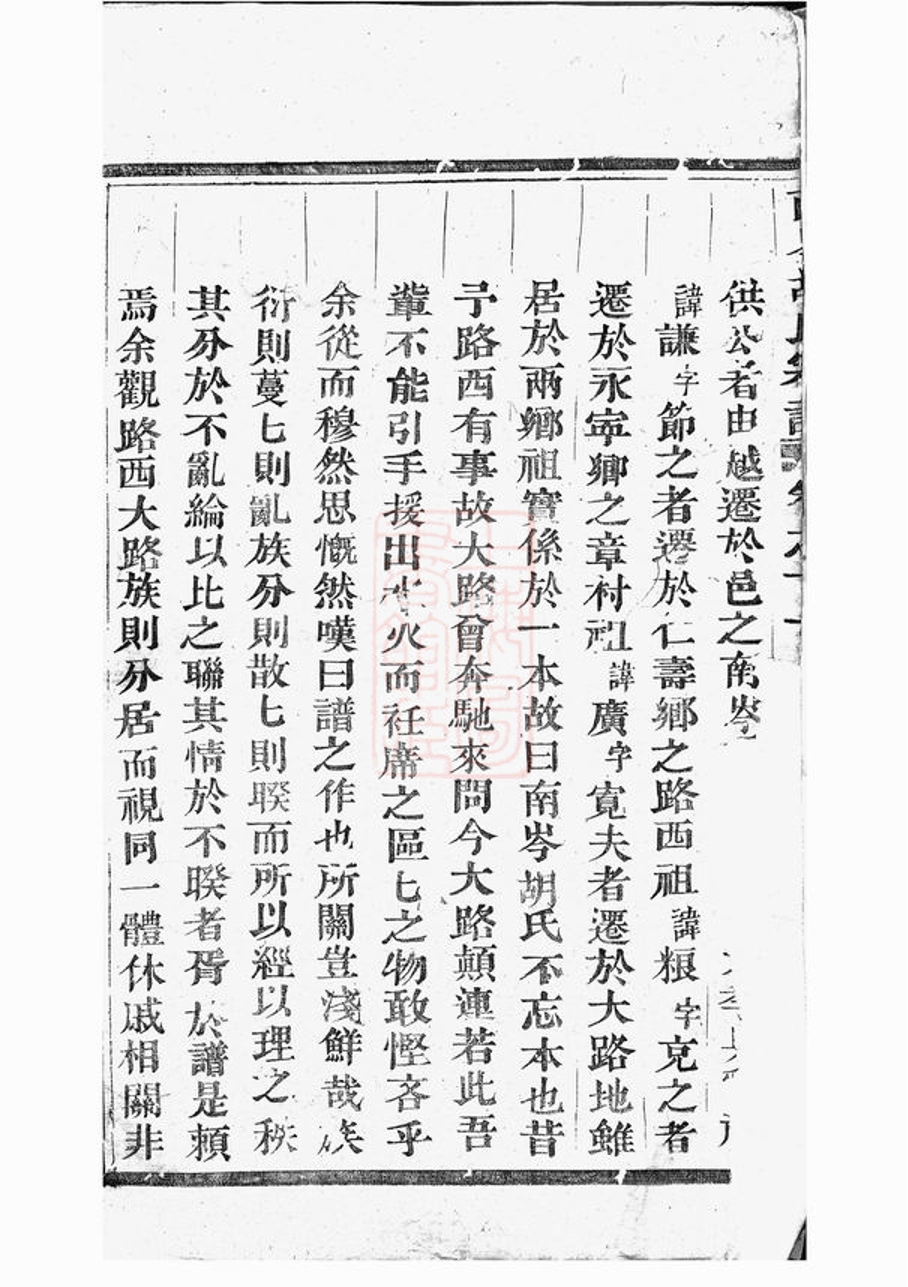 供公者由越遷於邑之南岑
諱謙字節之者遷於仁壽鄉之路西祖諱粮字克之者
遷於永寧鄉之章村祖諱廣字寬夫者遷於大路地雖
居於兩鄉祖實係於一本故曰南岑胡氏不忘本也昔
予路西有事故大路曾奔馳來問今大路顛連若此吾
輩不能引手援出水火而衽席之區匕之物敢慳吝乎
余從而穆然思慨然嘆曰譜之作也所關豈淺鮮哉族
衍則蔓匕則亂族分則散匕則暌而所以經以理之秩
其分於不亂綸以比之聯其情於不暌者胥於譜是頼
焉余觀路西大路族則分居而視同一體休戚相關非